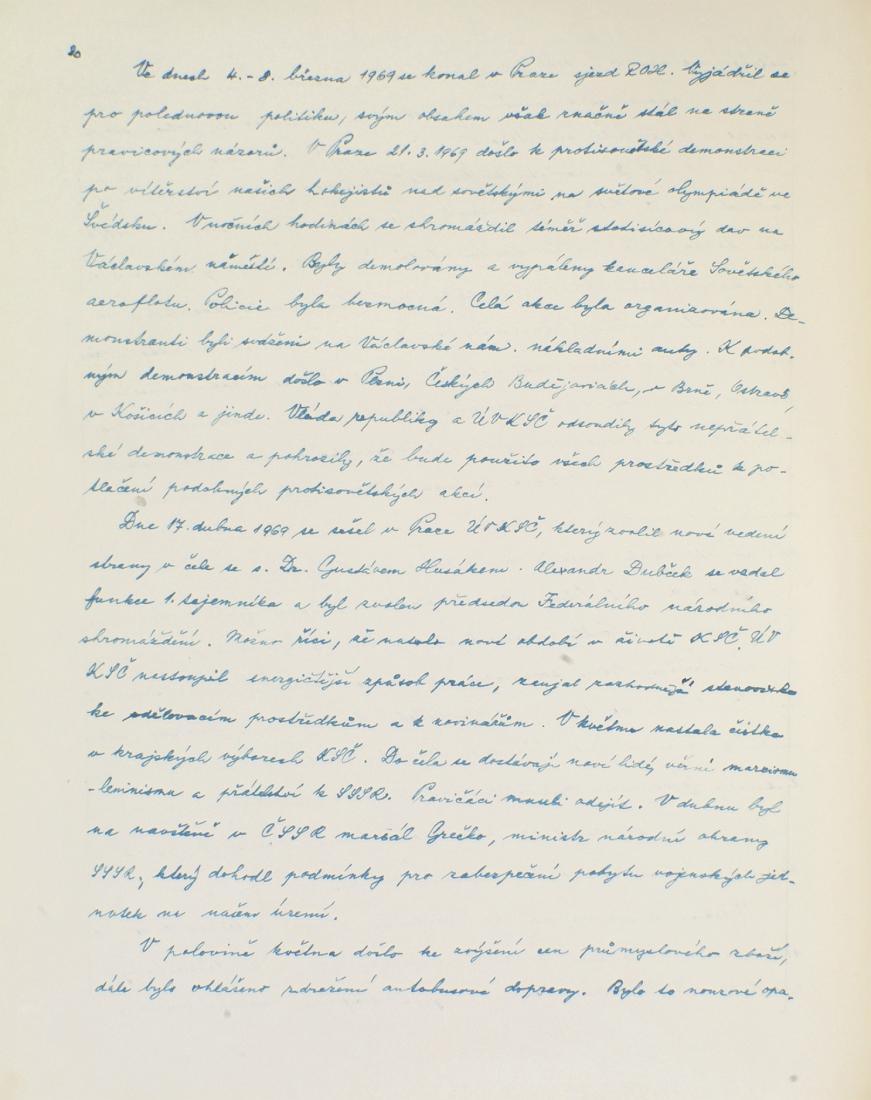 20
Ve dnech 4.-8. března 1969 se konal v Praze sjezd ROH. Vyjádřil se
pro polednovou politiku, svým obsahem však značně stál na straně
pravicových názorů. V Praze 21.3.1969 došlo k protisovětské demonstraci
po vítěrství našich hokejistů nad sovětskými na světové olympiádě ve
Švédsku. V nočních hodinách se shromáždil téměř statisícový dav na
Václavském náměstí. Byly demolovány a vypáleny kanceláře Sovětského
aeroflotu. Policie byla bezmocná. Celá akce byla organizována. De-
monstranti byli sváženi na Václavské nám. nákladními auty. K podob-
ným demonstracím došlo v Plzni, Českých Budějovicích, v Brně, Ostravě,
v Košicích a jinde. Vláda republiky a ÚV KSČ odsoudily tyto nepřátel-
ské demonstrace a pohrozily, že bude použito všech prostředků k po-
tlačení podobných protisovětských akcí.
Dne 17. dubna 1969 se sešel v Praze ÚV KSČ, který zvolil nové vedení
strany v čele se s. Dr. Gustávem Husákem. Alexandr Dubček se vzdal
funkce 1. tajemníka a byl zvolen předsedou Federálního národního
shromáždění. Možno říci, že nastalo nové období v životě KSČ. ÚV
KSČ nastoupil energičtější způsob práce, zaujal rozhodnější stanoviska
ke sdělovacím prostředkům a k novinářům. V květnu nastala čistka
v krajských výborech KSČ. Do čela se dostávají noví lidé, věrní marxismu
-leninismu a přátelství k SSSR. Pravičáci museli odejít. V dubnu byl
na navštěvě v ČSSR maršál Grečko, ministr národní obrany
SSSR, který dohodl podmínky pro zabezpečení pobytu vojenských jed-
notek na našem území.
V polovině května došlo ke zvýšení cen průmyslového zboží,
dále bylo ohlášeno zdražení autobusové dopravy. Bylo to nouzové opa-